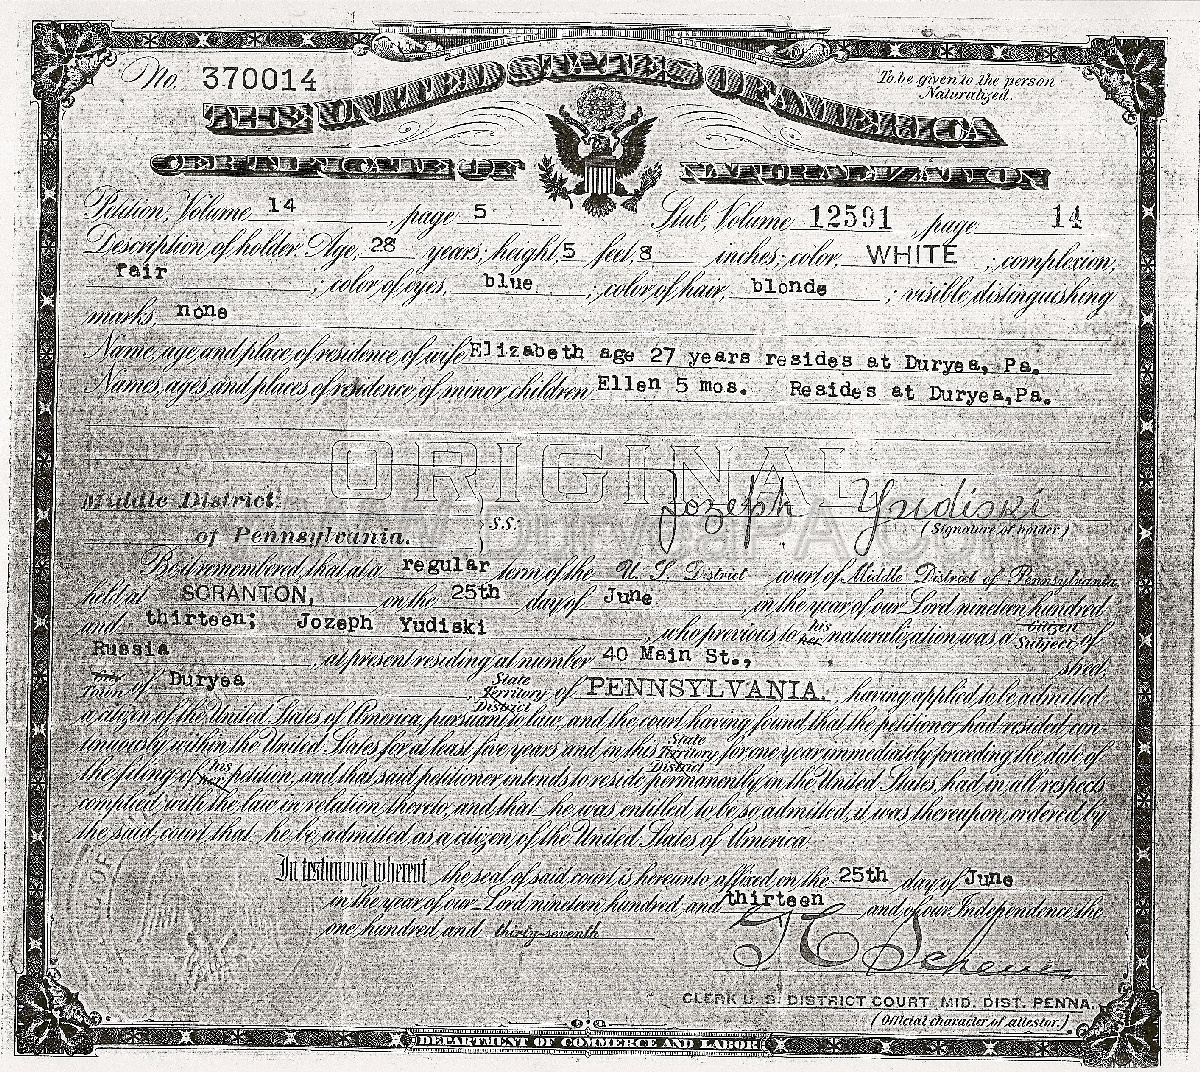 No. 370014
To be given to the person Naturalized.
THE UNITED STATES OF AMERICA
CERTIFICATE OF NATURALIZATION
Petition, Volume 14, page 5 Stub, Volume 12591, page 14
Description of holder: Age, 28 years; height, 5 feet, 8 inches; color, WHITE; complexion,
fair; color of eyes, blue; color of hair, blonde; visible distinguishing
marks, none
Name, age and place of residence of wife Elizabeth age 27 years resides at Duryea, Pa.
Names, ages and places of residence of minor children Ellen 5 mos. Resides at Duryea,Pa.
ORIGINAL
Middle District
of Pennsylvania. s.s:
Jozeph Yudiski
(Signature of holder)
DuryeaPA.com
Be it remembered that at a regular term of the U S District court of Middle District of Pennsylvania
held at SCRANTON, on the 25th day of June, in the year of our Lord nineteen hundred
and thirteen; Jozeph Yudiski, who previous to his her naturalization was a citizen Subject of
Russia, at present residing at number 40 Main St., street,
Town of Duryea, State Territory District of PENNSYLVANIA, having applied to be admitted
a citizen of the United States of America, pursuant to law, and the court having found that the petitioner had resided con-
tinuously within the United States for at least five years and in this State Territory District for one year immediately preceding the date of
the filing of his her petition, and that said petitioner intends to reside permanently in the United States, had in all respects
complied with the law in relation thereto, and that he was entitled to be so admitted, it was thereupon ordered by
the said court that he be admitted as a citizen of the United States of America.
In testimony whereof the seal of said court is hereunto affixed on the 25th day of June
in the year of our Lord nineteen hundred and thirteen and of our Independence the
one hundred and thirty-seventh
CLERK U. S. DISTRICT COURT, MID. DIST. PENNA.
(Official character of attestor.)
DEPARTMENT OF COMMERCE AND LABOR